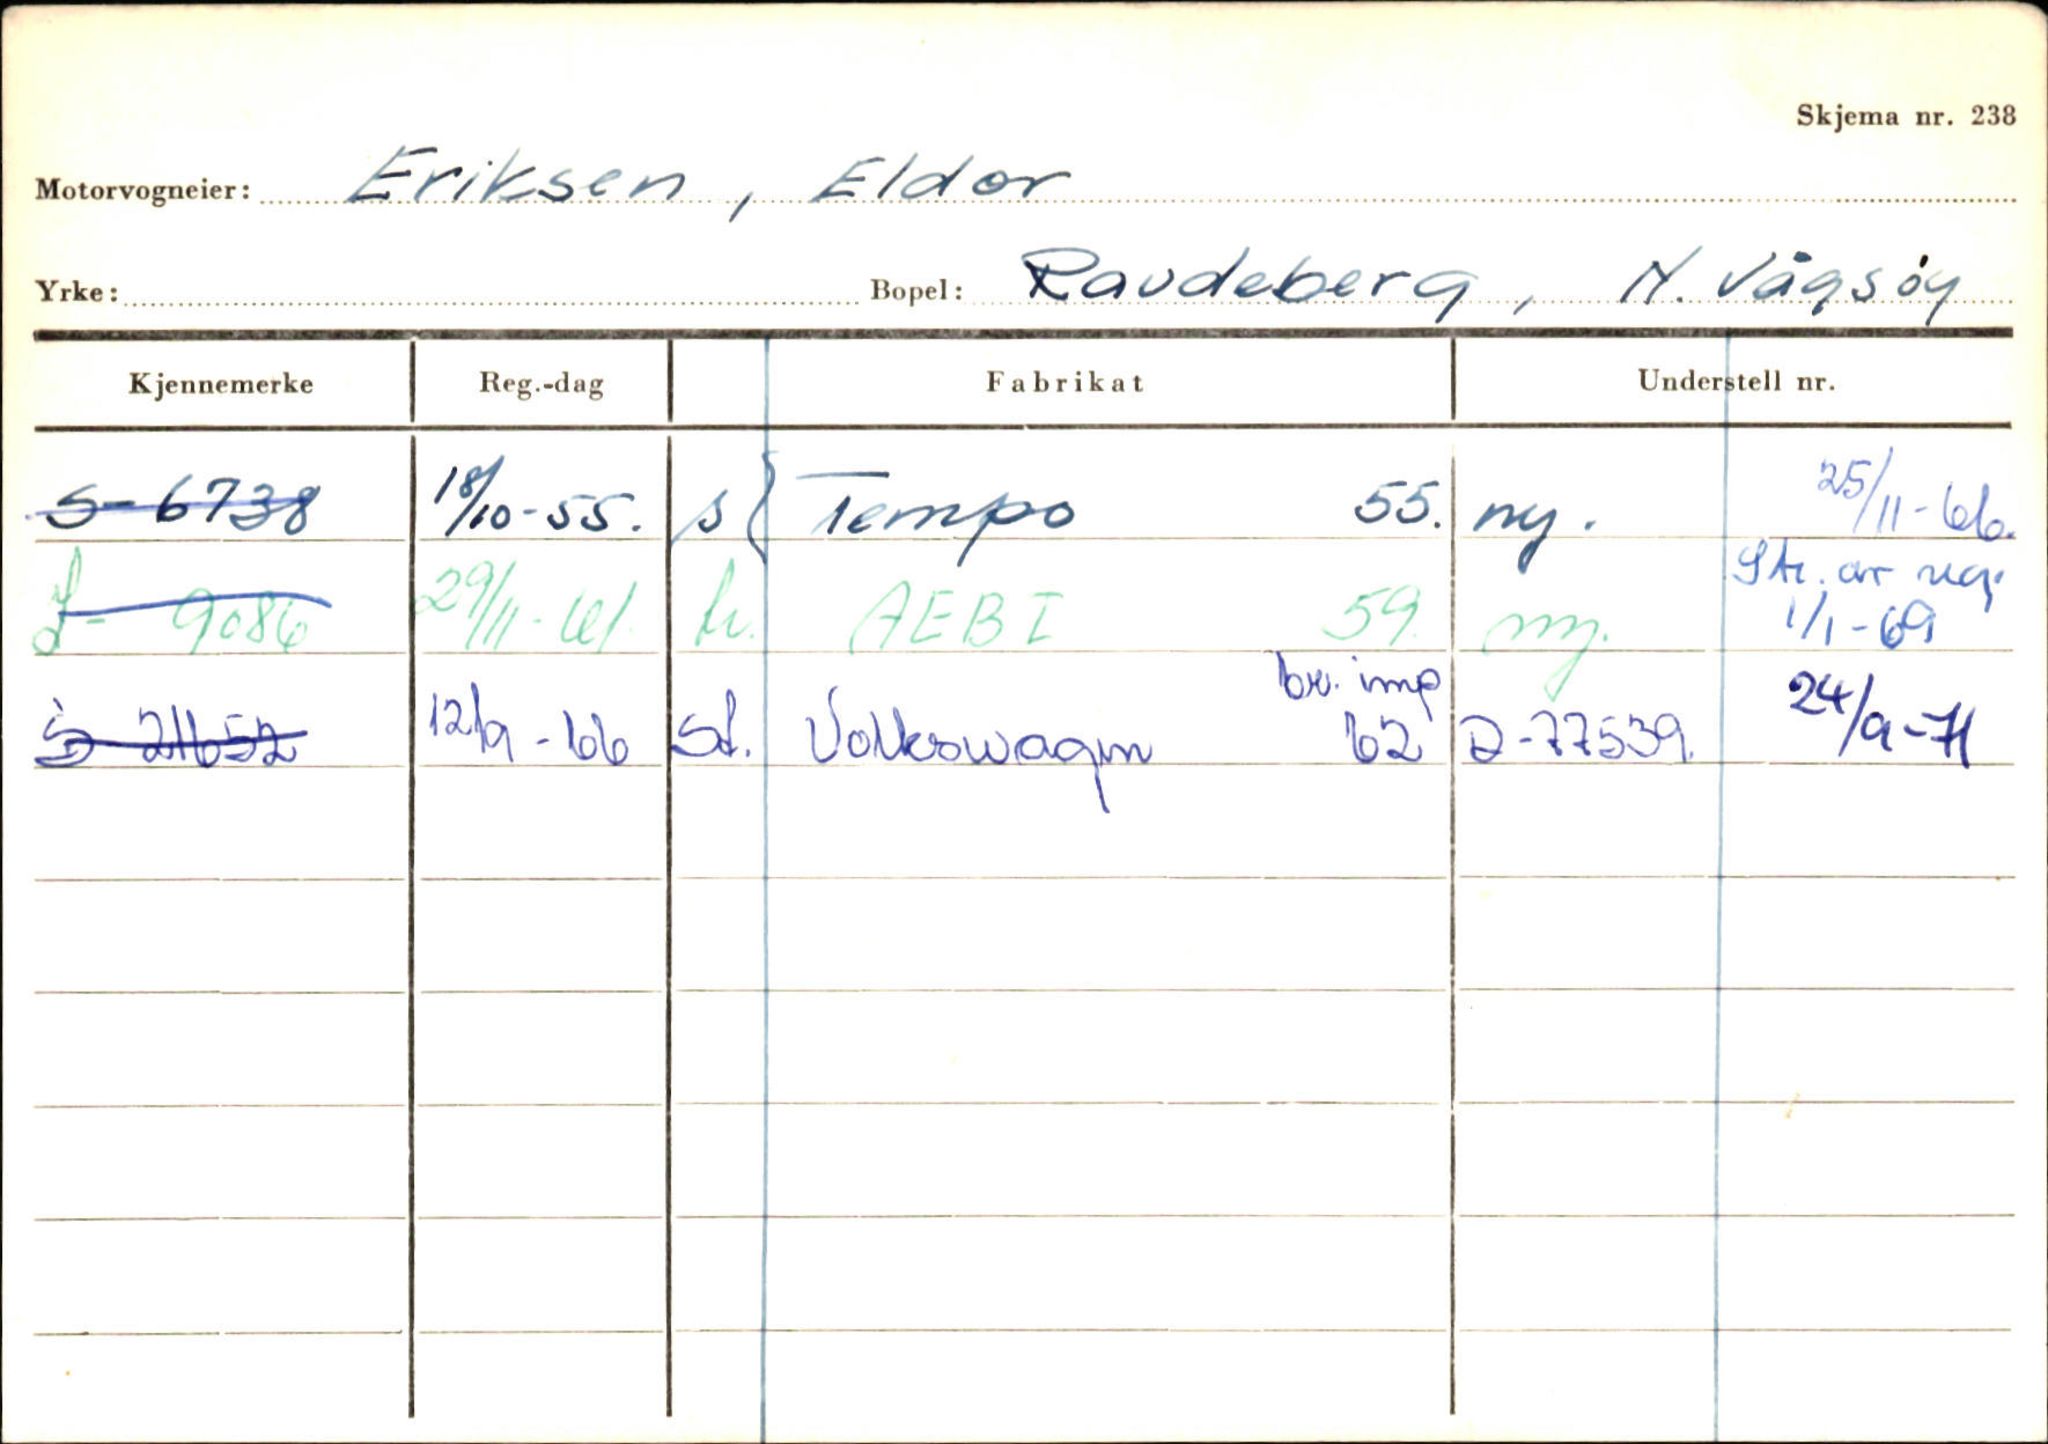 Skjema nr. 238
Motorvogneier: Eriksen, Eldor
Yrke: Bopel: Raudeberg, N. Vågsøy
Kjennemerke Reg.-dag Fabrikat Understell nr.
S-6738 18/10-55. s { Tempo 55. ny. 25/11-66.
S- 9086 29/11-61. AEBI 59. ny. Str. av reg. 1/1-69
br. imp
S-21652 12/9-66 St. Volkswagen 62 2-77539. 24/9-71